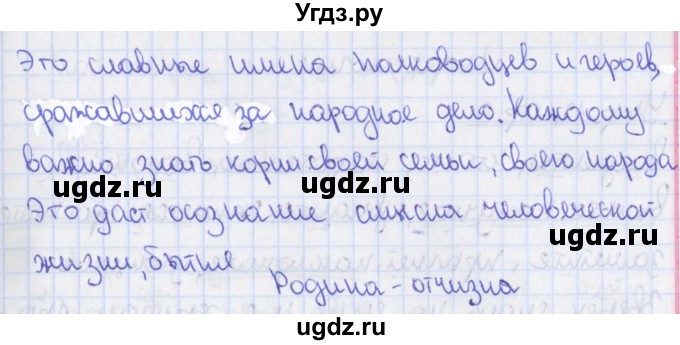 Угдз.ру
Это славные имена полководцев и героев,
сражавшихся за народное дело. Каждому
важно знать корни своей семьи, своего народа
ugdz.ru ugdz.ru ugdz.ru
Это даст осознание смысла человеческой
ugdz.ru
жизни, бытия
Родина - отчизна
ugdz.ru
ugdz.ru